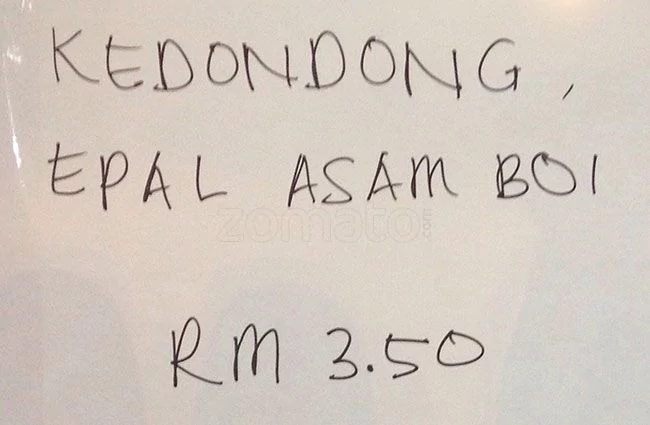 KEDONDONG,
EPAL ASAM BOI
zomato.com
RM 3.50